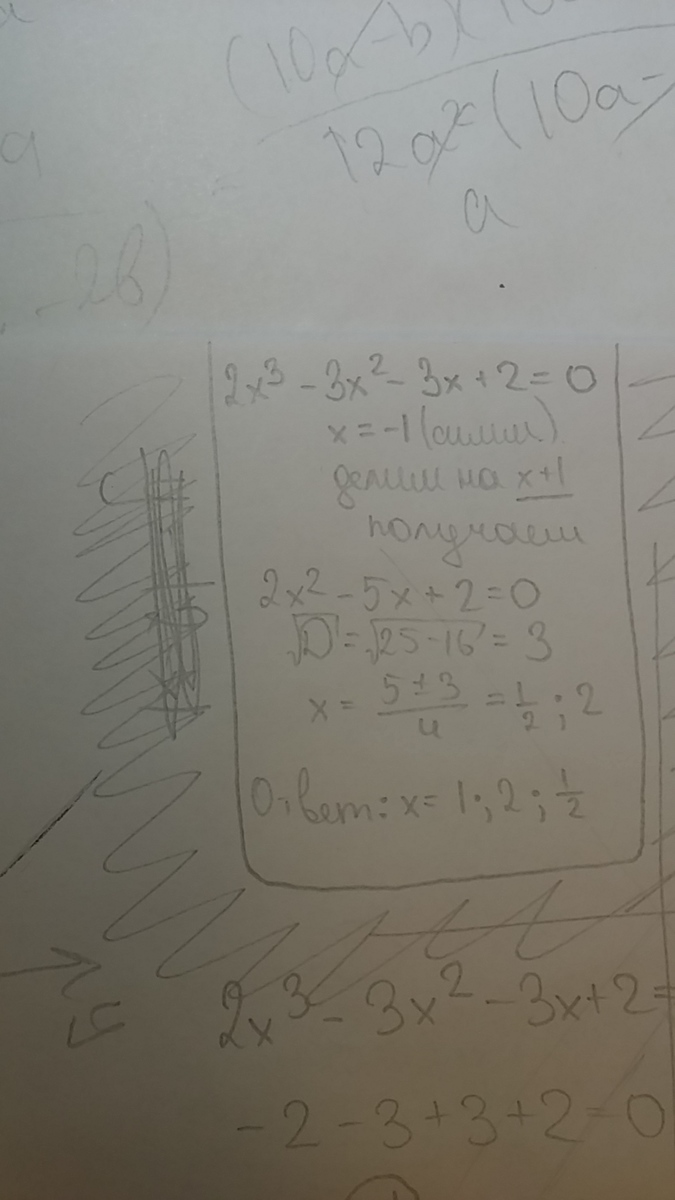 (10a-b)(10
12a² (10a-
a
a
-2b)
2x³ - 3x² - 3x + 2 = 0
x = -1
делим на x+1
получаем
2x² - 5x + 2 = 0
√D = √25-16 = 3
x = 5±3/4 = 1/2 ; 2
Ответ: x = 1 ; 2 ; 1/2
2x³ - 3x² - 3x + 2 =
-2 - 3 + 3 + 2 = 0